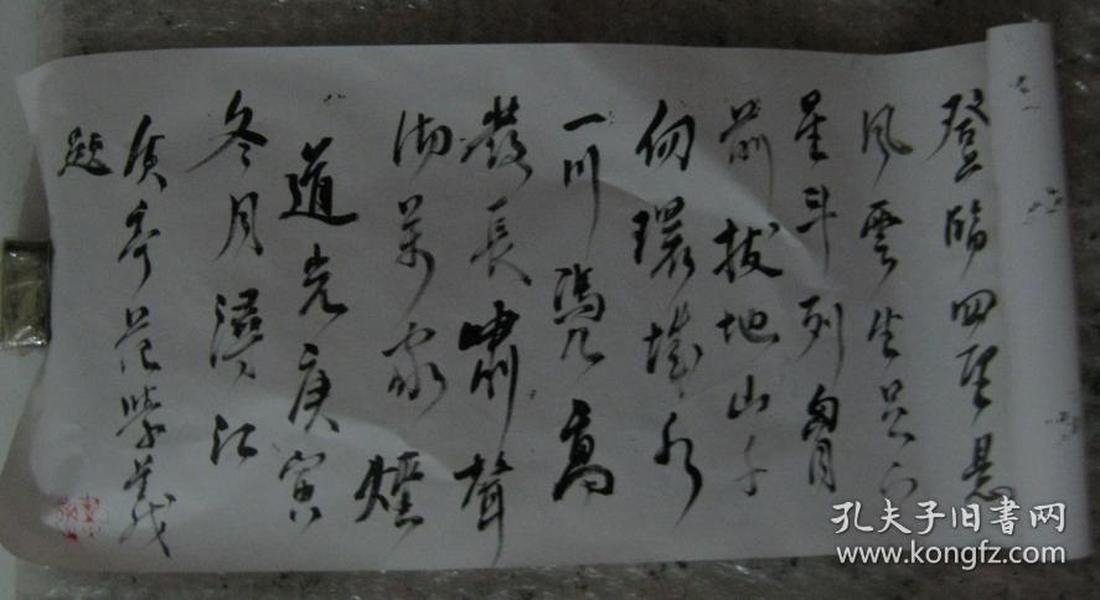 登臨四望懸
風雲生足下
星斗列胸
前拔地山千
仞環城水
一川憑高
發長嘯聲
沸萬家煙
道光庚寅
冬月漢江
亭范學
題
孔夫子旧書网
www.kongfz.com